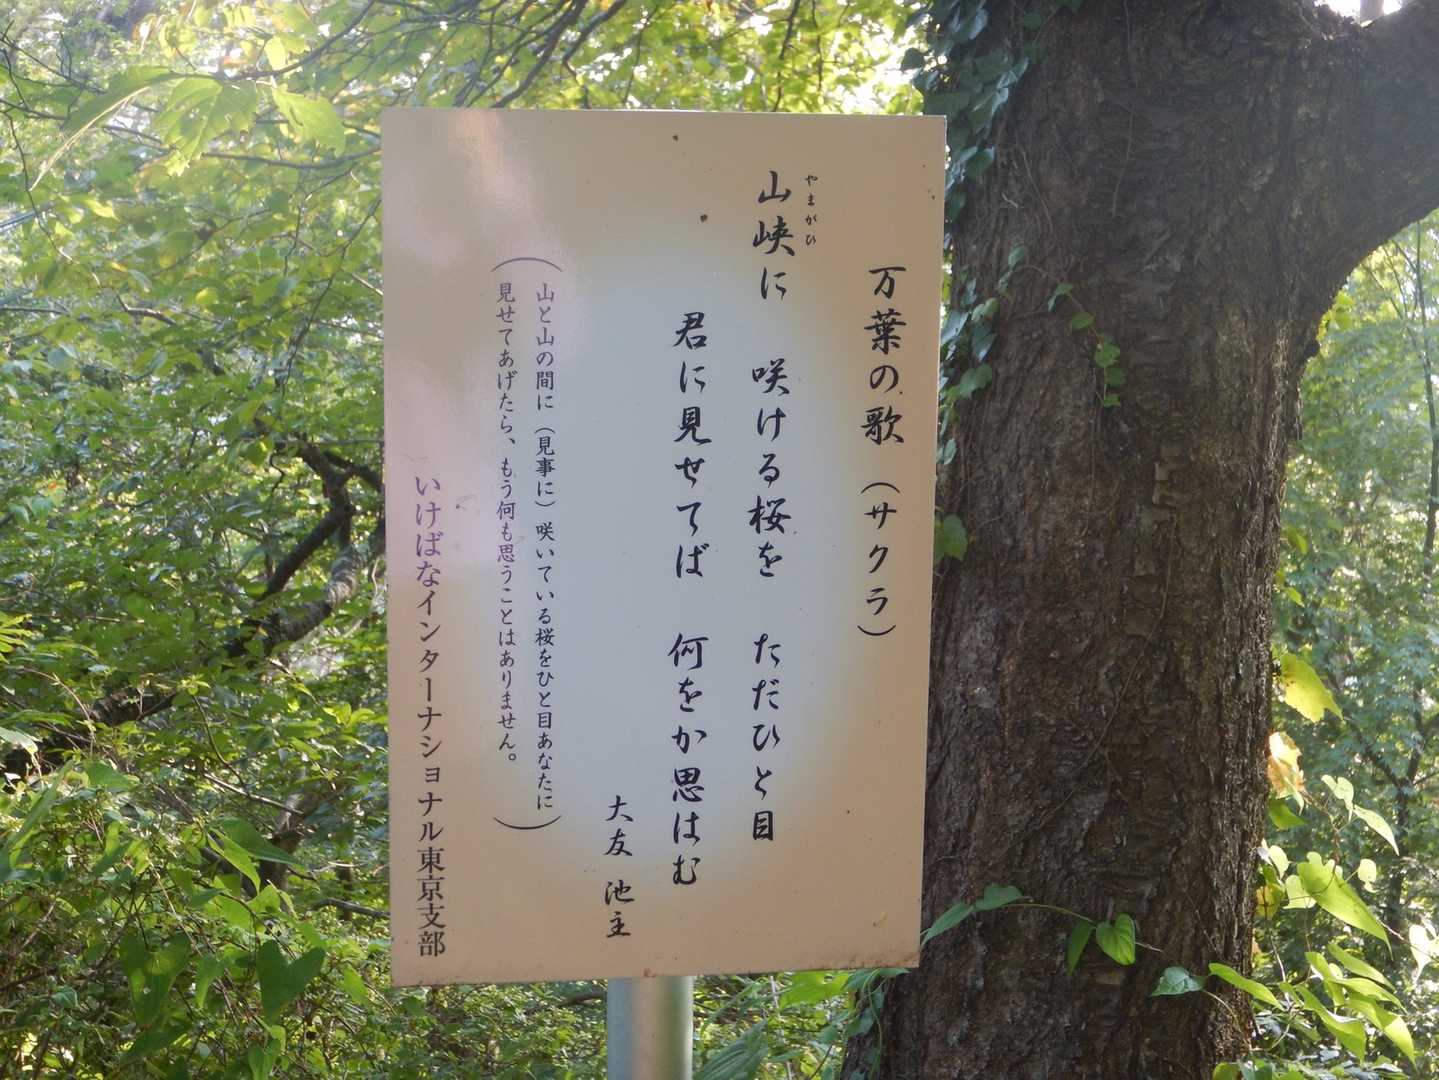 万葉の歌（サクラ）
やまがひ
山峡に　咲ける桜を　ただひと目
君に見せてば　何をか思はむ
大友　池主
（山と山の間に（見事に）咲いている桜をひと目あなたに
見せてあげたら、もう何も思うことはありません。）
いけばなインターナショナル東京支部